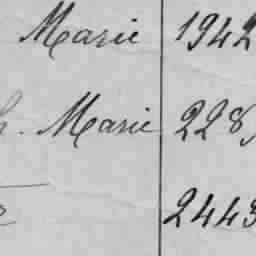 Marie 1942
h. Marie 228
2443